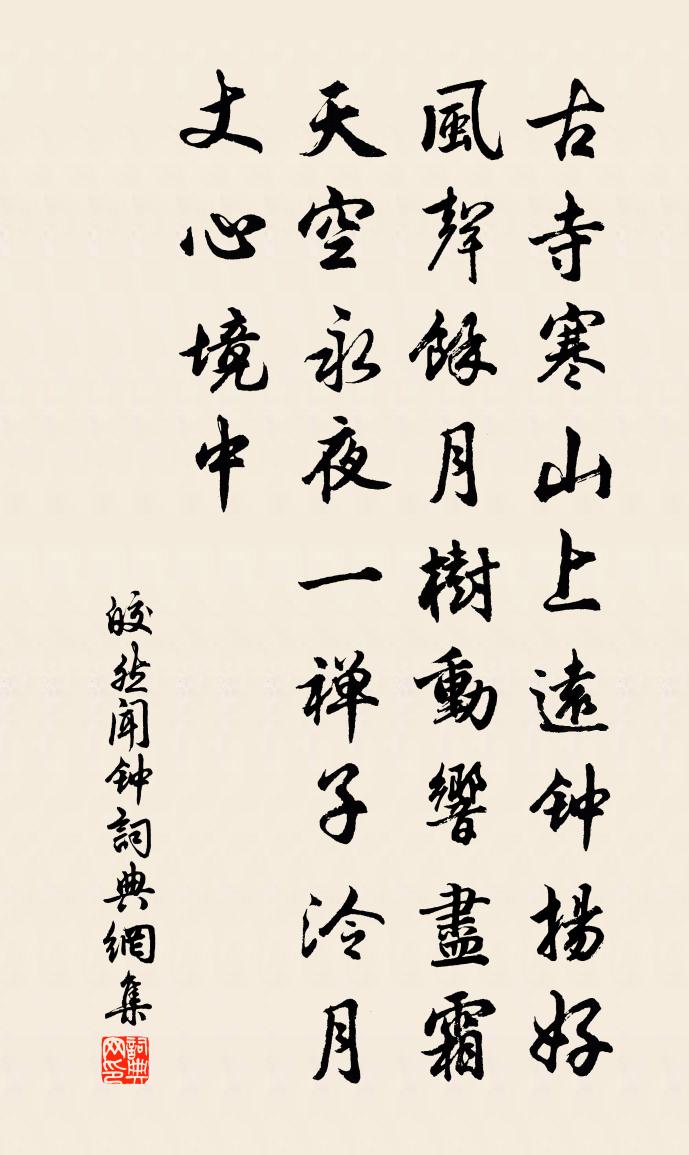 古寺寒山上遠钟揚好
風聲餘月樹動響盡霜
天空永夜一禅子泠月
丈心境中
皎然闻钟詞典網集
詞典网印